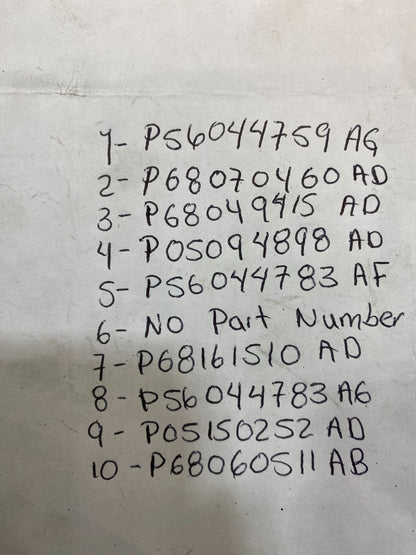 1- P56044759 AG
2- P68070460 AD
3- P68049415 AD
4- P05094898 AD
5- P56044783 AF
6- NO Part Number
7- P68161510 AD
8- P56044783 AG
9- P05150252 AD
10-P68060511 AB